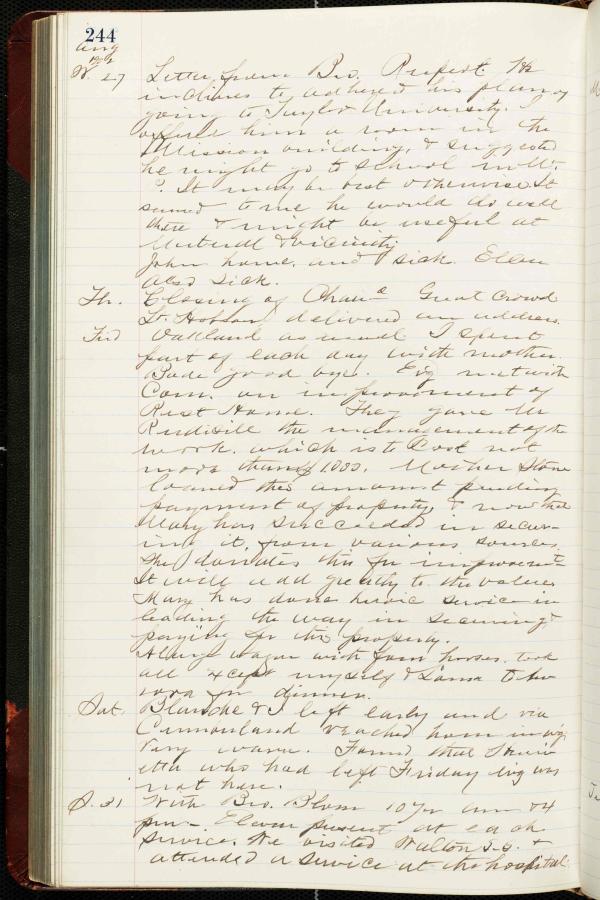 244
Aug
W 27 Letter from Bro. Rupert. He
inclines to adhered his plan of
going to Taylor University. I
offered him a room in the
Mission building, & suggested
he might go to school in
? It may be best otherwise. It
seemed to me he would do well
there & might be useful at
& vicinity.
John home, and sick. Ellen
also sick.
Th. Closing of Great crowd
Lt. Hobson delivered an address.
Frid Oakland as usual I spent
part of each day with mother.
Bade good bye. Evg met with
Com. on improvement of
Rest Home. They gave Mr
the management of the
work. which is to cost not
more than $1,000. Mother Stone
loaned this amount pending
payment of property, & now that
Mary has succeeded in secur-
ing it, from various sources
she donates this for improvemt
It will add greatly to the values
Mary has done heroic service in
leading the way in securing &
paying for this property.
A large wagon with four horses. took
all except myself & to
for dinner.
Sat. Blanche & I left early and via
Cumberland reached home in evg
Very warm. Found that
etta who had left Friday evg was
not here.
S. 31 With Bro. Blom 10 am & 4
pm - Eleven present at each
service. We visited Walton S.S. &
attended a service at the hospital.